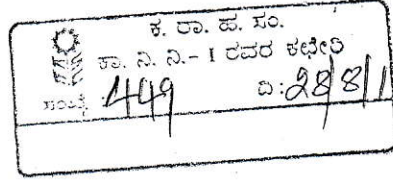 ಕ. ರಾ. ಹ. ಸಂ.
ಕಾ. ನಿ. ನಿ.- I ರವರ ಕಛೇರಿ
ಸಂಖ್ಯೆ 449 ದಿ: 28/8/1